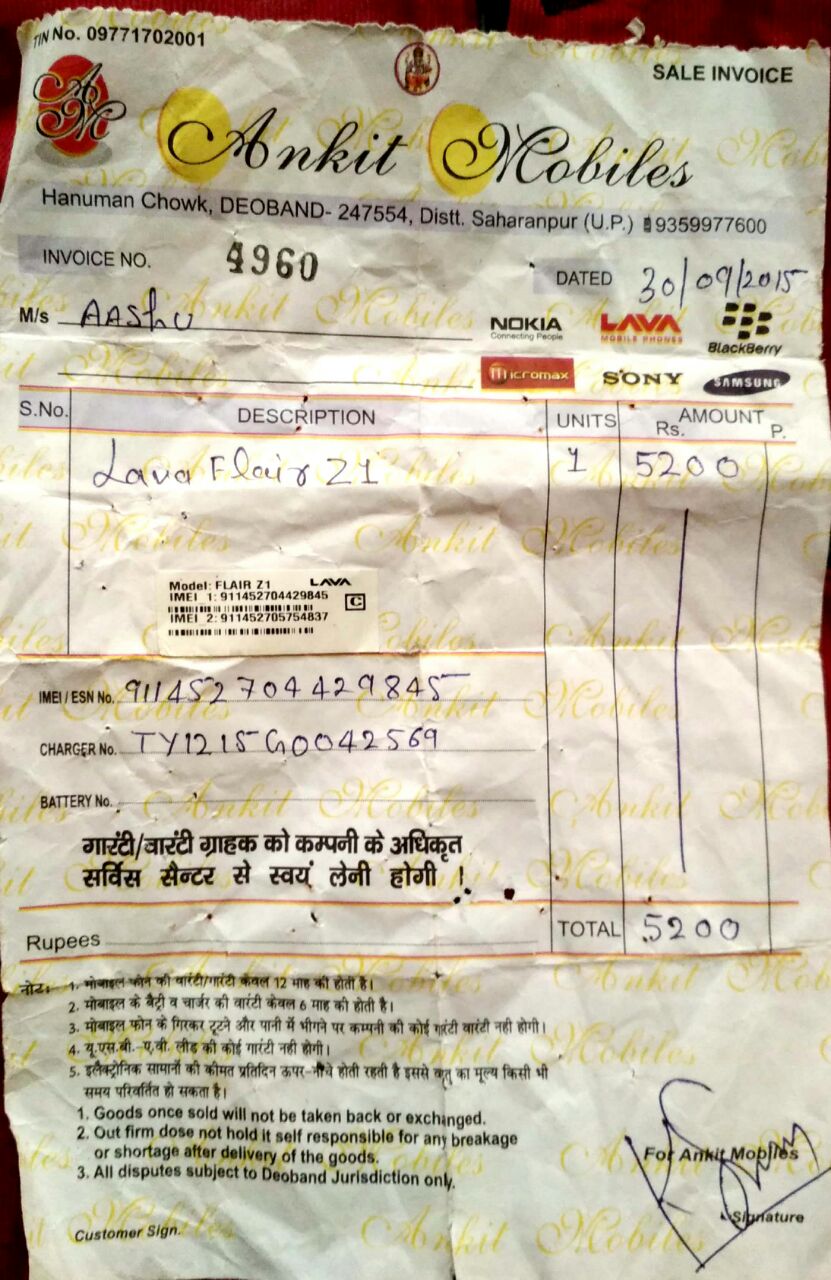 TIN No. 09771702001
SALE INVOICE
AM
Ankit Mobiles
Hanuman Chowk, DEOBAND- 247554, Distt. Saharanpur (U.P.) 9359977600
INVOICE NO. 4960
DATED 30/09/2015
M/s AAShU
NOKIA
Connecting People
LAVA
MOBILE PHONES
BlackBerry
micromax
SONY
SAMSUNG
S.No. DESCRIPTION UNITS AMOUNT
Rs. P.
Lava Flair Z1 1 5200
Model: FLAIR Z1 LAVA
IMEI 1: 911452704429845
C
IMEI 2: 911452705754837
IMEI / ESN No. 911452704429845
CHARGER No. TY1215G0042569
BATTERY No.
गारंटी/वारंटी ग्राहक को कम्पनी के अधिकृत
सर्विस सैन्टर से स्वयं लेनी होगी !
Rupees TOTAL 5200
नोटः- 1. मोबाइल फोन की वारंटी/गारंटी केवल 12 माह की होती है।
2. मोबाइल के बैट्री व चार्जर की वारंटी केवल 6 माह की होती है।
3. मोबाइल फोन के गिरकर टूटने और पानी में भीगने पर कम्पनी की कोई गारंटी वारंटी नही होगी।
4. यू.एस.बी.-ए.वी. लीड की कोई गारंटी नही होगी।
5. इलैक्ट्रोनिक सामानों की कीमत प्रतिदिन ऊपर-नीचे होती रहती है इससे वस्तु का मूल्य किसी भी
समय परिवर्तित हो सकता है।
1. Goods once sold will not be taken back or exchanged.
2. Out firm dose not hold it self responsible for any breakage
or shortage after delivery of the goods.
3. All disputes subject to Deoband Jurisdiction only.
For Ankit Mobiles
Signature
Customer Sign.